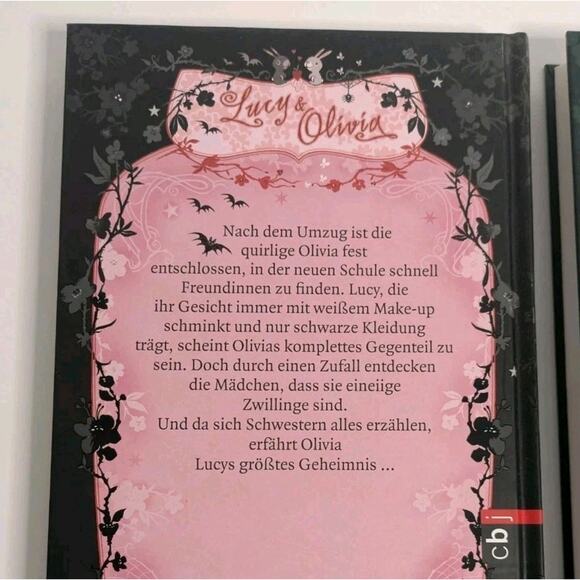 Lucy &
Olivia
Nach dem Umzug ist die
quirlige Olivia fest
entschlossen, in der neuen Schule schnell
Freundinnen zu finden. Lucy, die
ihr Gesicht immer mit weißem Make-up
schminkt und nur schwarze Kleidung
trägt, scheint Olivias komplettes Gegenteil zu
sein. Doch durch einen Zufall entdecken
die Mädchen, dass sie eineiige
Zwillinge sind.
Und da sich Schwestern alles erzählen,
erfährt Olivia
Lucys größtes Geheimnis ...
cbj